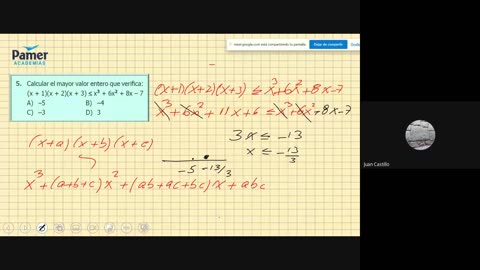 Pamer
ACADEMIAS
meet.google.com está compartiendo tu pantalla.
Dejar de compartir
Ocultar
5. Calcular el mayor valor entero que verifica:
(x + 1)(x + 2)(x + 3) ≤ x³ + 6x² + 8x – 7
A) –5 B) –4
C) –3 D) 3
(x+1)(x+2)(x+3) ≤ x³+6x²+8x-7
x³ + 6x² + 11x + 6 ≤ x³+6x²+8x-7
3x ≤ -13
x ≤ -13/3
(x+a)(x+b)(x+c)
-5 -13/3
x³+(a+b+c)x²+(ab+ac+bc)x+abc
Juan Castillo